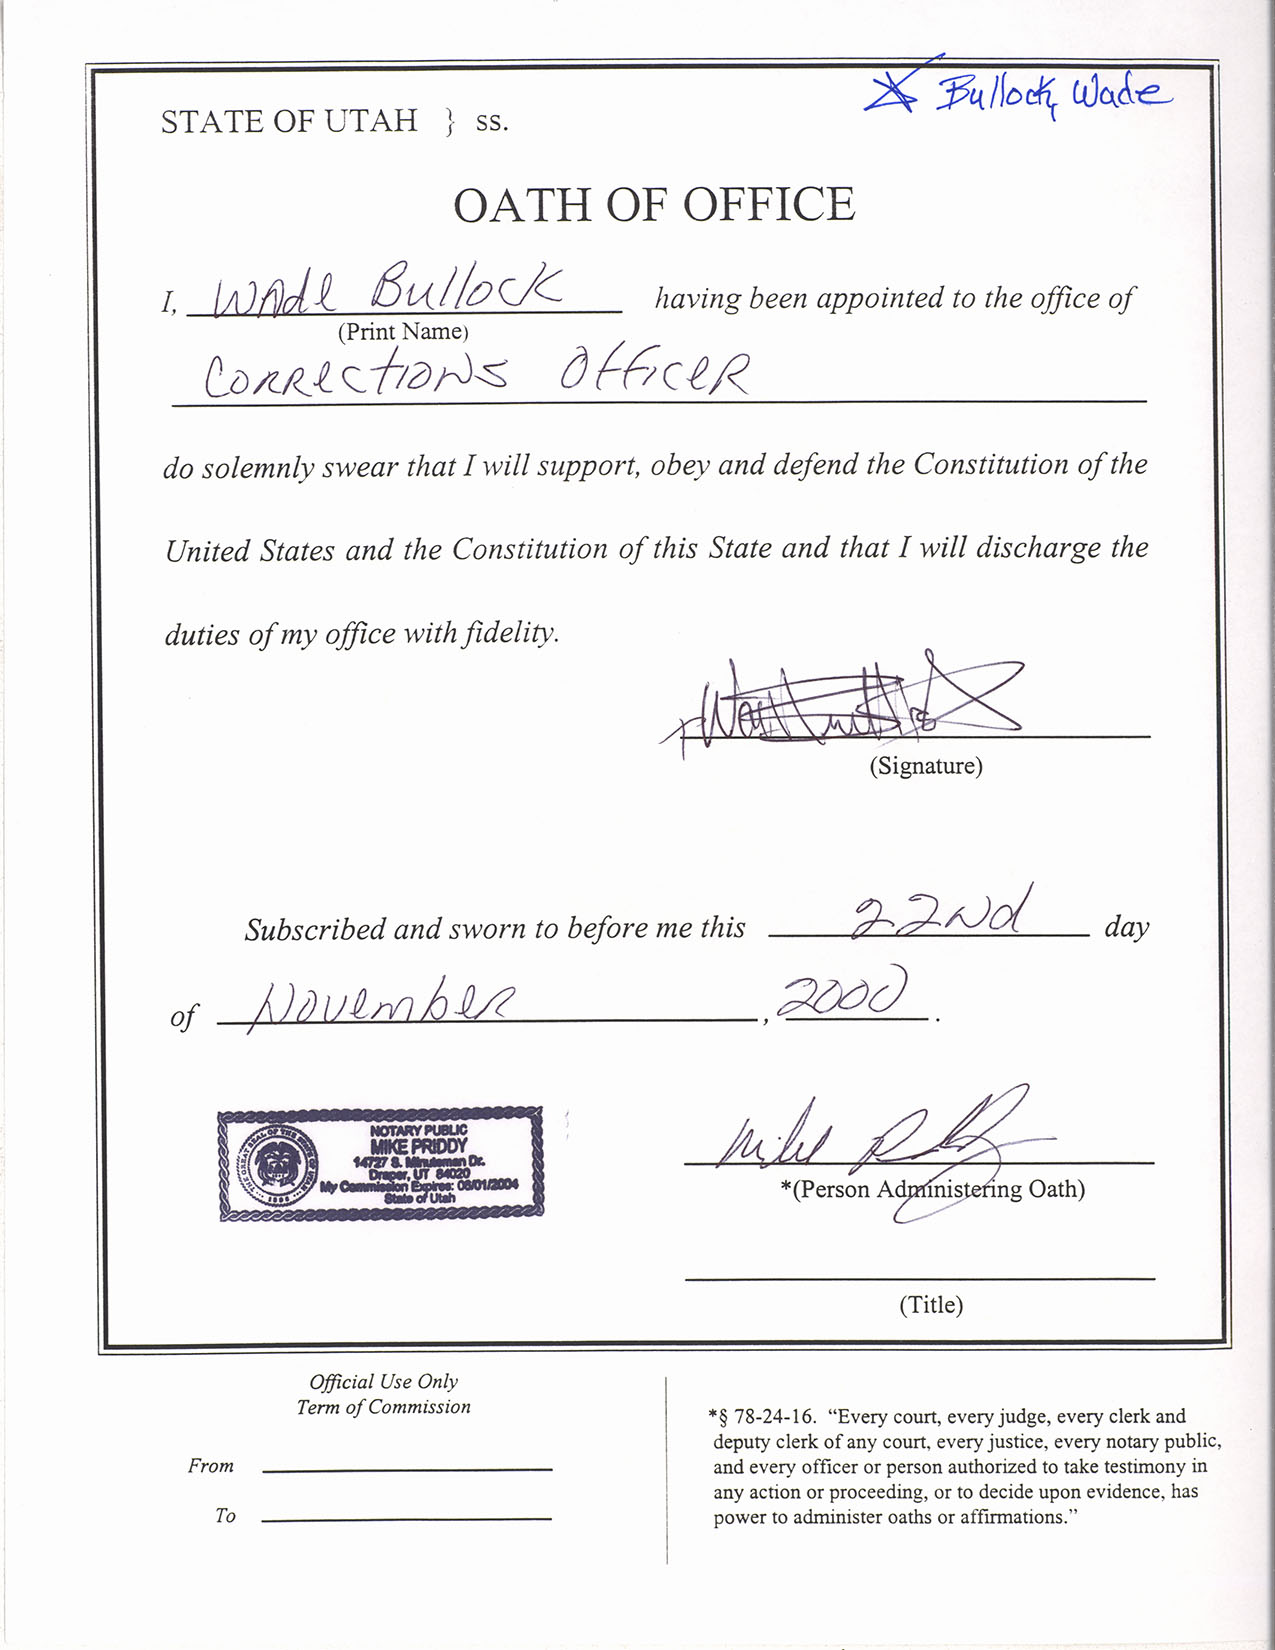 Bullock, Wade
STATE OF UTAH } ss.
OATH OF OFFICE
I, Wade Bullock having been appointed to the office of
(Print Name)
Corrections Officer
do solemnly swear that I will support, obey and defend the Constitution of the
United States and the Constitution of this State and that I will discharge the
duties of my office with fidelity.
(Signature)
Subscribed and sworn to before me this 22nd day
of November, 2000.
NOTARY PUBLIC
MIKE PRIDDY
14727 S. Minuteman Dr.
Draper, UT 84020
My Commission Expires: 03/01/2004
State of Utah
Mike
*(Person Administering Oath)
(Title)
Official Use Only
Term of Commission
From
To
*§ 78-24-16. “Every court, every judge, every clerk and
deputy clerk of any court, every justice, every notary public,
and every officer or person authorized to take testimony in
any action or proceeding, or to decide upon evidence, has
power to administer oaths or affirmations.”